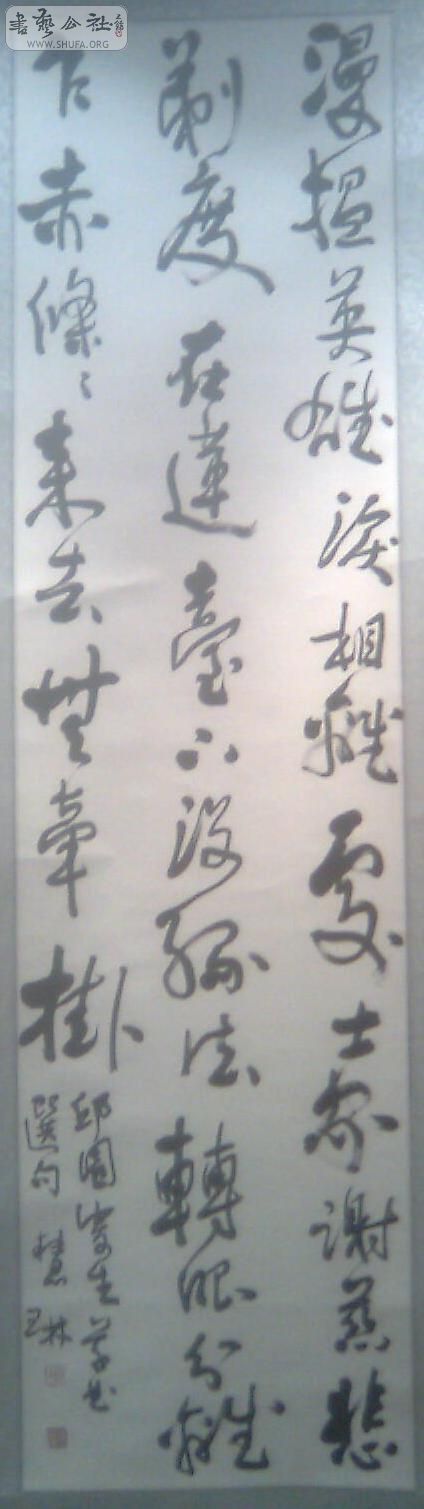 書藝公社
WWW.SHUFA.ORG
漫搵英雄淚相離處士家謝慈悲
剃度在蓮臺下沒緣法轉眼分離
乍赤條〻來去無牽掛
邱園寄生草
選句 慧琳